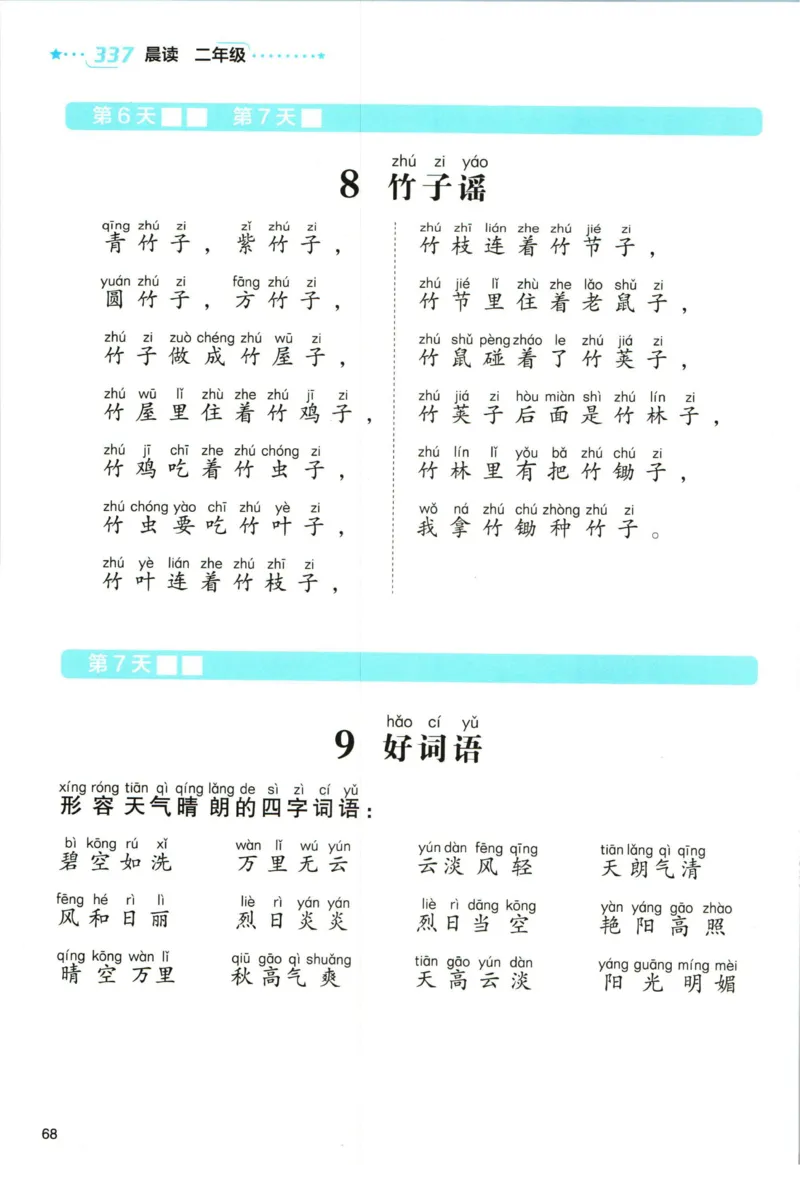 337 晨读 二年级
第6天 第7天
zhú zi yáo
8 竹子谣
qīng zhú zi zǐ zhú zi
青竹子，紫竹子，
yuán zhú zi fāng zhú zi
圆竹子，方竹子，
zhú zi zuò chéng zhú wū zi
竹子做成竹屋子，
zhú wū lǐ zhù zhe zhú jī zi
竹屋里住着竹鸡子，
zhú jī chī zhe zhú chóng zi
竹鸡吃着竹虫子，
zhú chóng yào chī zhú yè zi
竹虫要吃竹叶子，
zhú yè lián zhe zhú zhī zi
竹叶连着竹枝子，
zhú zhī lián zhe zhú jié zi
竹枝连着竹节子，
zhú jié lǐ zhù zhe lǎo shǔ zi
竹节里住着老鼠子，
zhú shǔ pèng zháo le zhú jiá zi
竹鼠碰着了竹荚子，
zhú jiá zi hòu miàn shì zhú lín zi
竹荚子后面是竹林子，
zhú lín lǐ yǒu bǎ zhú chú zi
竹林里有把竹锄子，
wǒ ná zhú chú zhòng zhú zi
我拿竹锄种竹子。
第7天
hǎo cí yǔ
9 好词语
xíng róng tiān qì qíng lǎng de sì zì cí yǔ
形容天气晴朗的四字词语：
bì kōng rú xǐ wàn lǐ wú yún yún dàn fēng qīng tiān lǎng qì qīng
碧空如洗 万里无云 云淡风轻 天朗气清
fēng hé rì lì liè rì yán yán liè rì dāng kōng yàn yáng gāo zhào
风和日丽 烈日炎炎 烈日当空 艳阳高照
qíng kōng wàn lǐ qiū gāo qì shuǎng tiān gāo yún dàn yáng guāng míng mèi
晴空万里 秋高气爽 天高云淡 阳光明媚
68